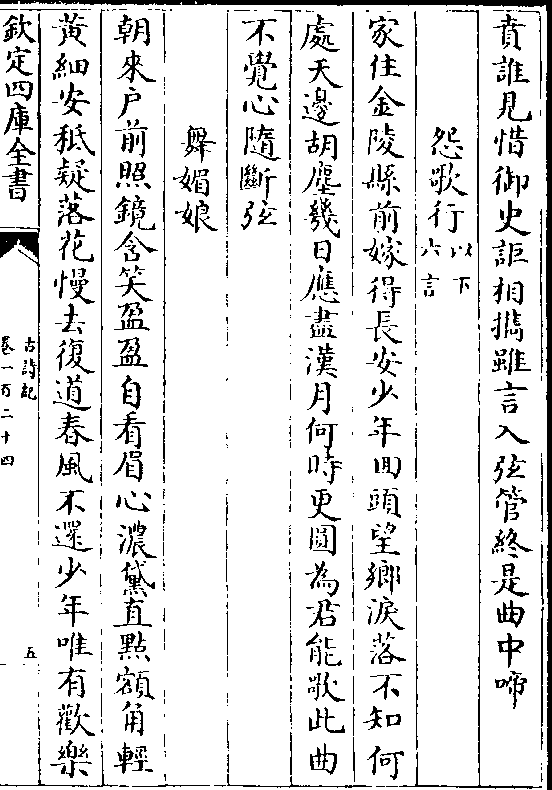 賁誰見惜御史詎相擕雖言入弦管終是曲中啼
怨歌行以下六言
家住金陵縣前嫁得長安少年囬頭望鄉淚落不知何
處天邊胡塵幾日應盡漢月何時更圓為君能歌此曲
不覺心隨斷弦
舞媚娘
朝來户前照鏡含笑盈盈自看眉心濃黛直點額角輕
黃細安秪疑落花慢去復道春風不還少年唯有歡樂
欽定四庫全書
古詩紀
卷一百二十四
五